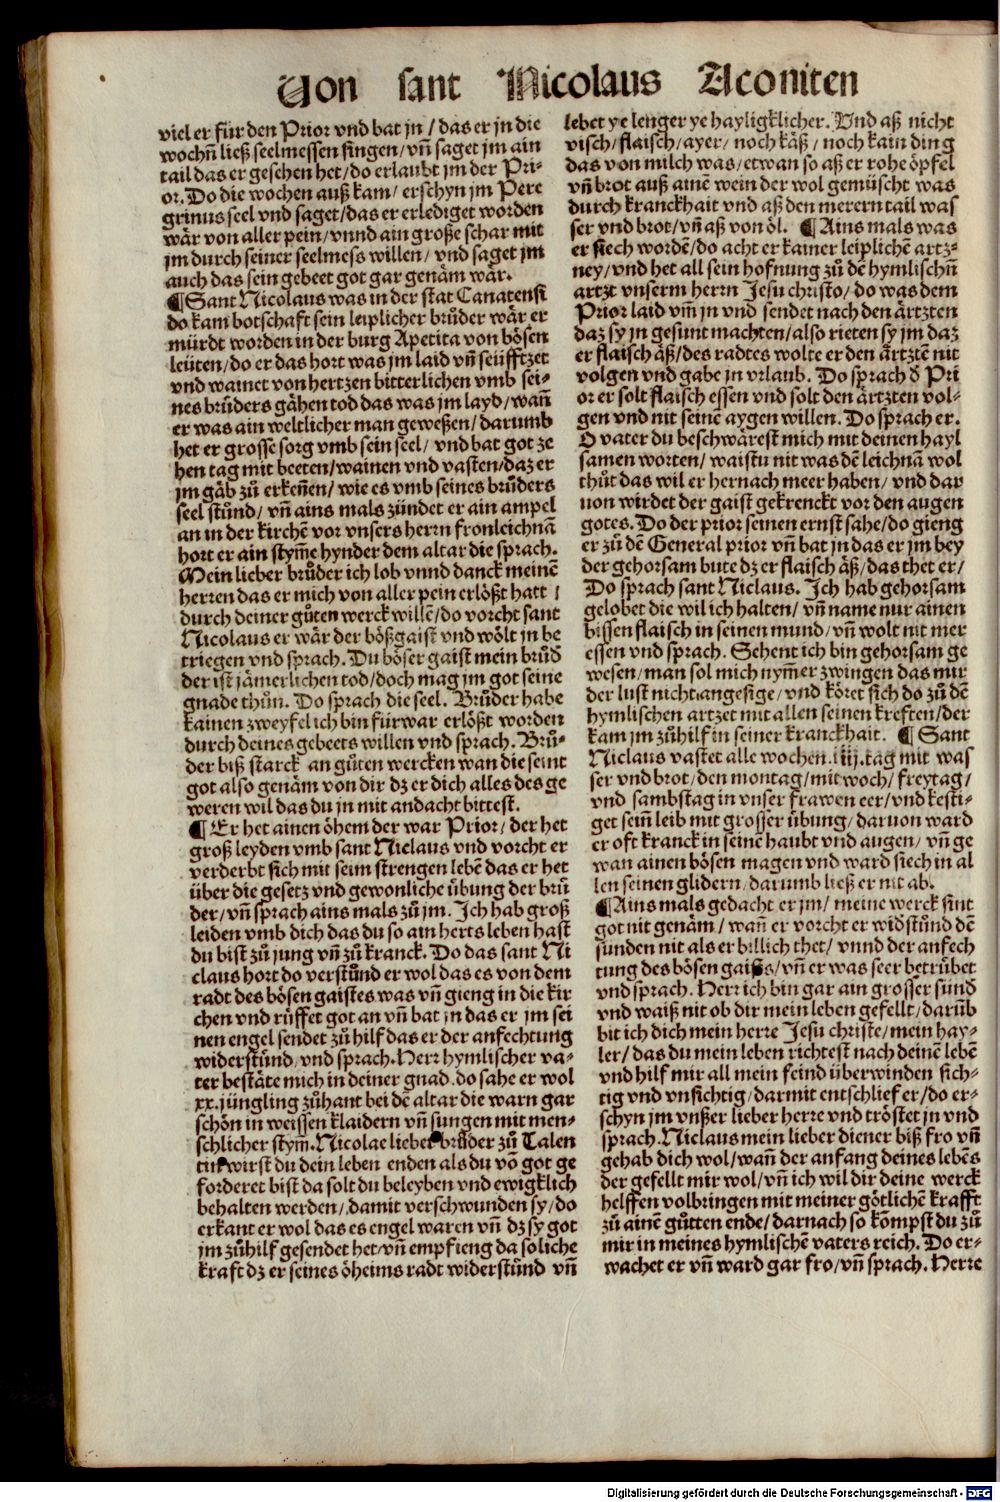 Von sant Nicolaus Aconiten
viel er für den Prior vnd bat jn / das er jn die
wochñ ließ seelmessen singen / vñ saget jm ain
tail das er gesehen het / do erlaubt jm der Pri-
or. Do die wochen auß kam / erschyn jm Pere
grinus seel vnd saget / das er erlediget worden
wär von aller pein / vnnd ain große schar mit
jm durch seiner seelmess willen / vnd saget jm
auch das sein gebeet got gar genäm wär.
¶ Sant Nicolaus was in der stat Canatensi
do kam botschaft sein leiplicher brůder wär er
mürdt worden in der burg Apetita von bösen
leüten / do er das hort was jm laid vñ seüfftzet
vnd wainet von hertzen bitterlichen vmb sei-
nes brůders gähen tod das was jm layd / wañ
er was ain weltlicher man geweßen / darumb
het er grosse sorg vmb sein seel / vnd bat got ze
hen tag mit beeten / wainen vnd vasten / daz er
jm gäb zů erkeñen / wie es vmb seines brůders
seel stůnd / vñ ains mals zündet er ain ampel
an in der kirchē vor vnsers herrn fronleichnā
hort er ain stym̄e hynder dem altar die sprach.
Mein lieber brůder ich lob vnnd danck meinē
herren das er mich von aller pein erlößt hatt /
durch deiner gůten werck willē / do vorcht sant
Nicolaus er wär der bößgaist vnd wölt jn be
triegen vnd sprach. Du böser gaist mein brůd
der ist jämerlichen tod / doch mag jm got seine
gnade thůn. Do sprach die seel. Brůder habe
kainen zweyfel ich bin fürwar erlößt worden
durch deines gebeets willen vnd sprach. Brů-
der biß starck an gůten wercken wan die seint
got also genäm von dir dz er dich alles des ge
weren wil das du jn mit andacht bittest.
¶ Er het ainen öhem der war Prior / der het
groß leyden vmb sant Niclaus vnd vorcht er
verderbt sich mit seim strengen lebē das er het
über die gesetz vnd gewonliche übung der brů
der / vñ sprach ains mals zů jm. Ich hab groß
leiden vmb dich das du so ain herts leben hast
du bist zů jung vñ zů kranck. Do das sant Ni
claus hort do verstůnd er wol das es von dem
radt des bösen gaistes was vñ gieng in die kir
chen vnd růffet got an vñ bat jn das er jm sei
nen engel sendet zů hilf das er der anfechtung
widerstůnd / vnd sprach. Herr hymlischer va-
ter bestäte mich in deiner gnad. do sahe er wol
xx. jüngling zůhant bei dē altar die warn gar
schön in weissen klaidern vñ sungen mit men-
schlicher stym̄. Nicolae lieber brůder zů Talen
tin wirst du dein leben enden als du vō got ge
forderet bist da solt du beleyben vnd ewigklich
behalten werden /. damit verschwunden sy / do
erkant er wol das es engel waren vñ dz sy got
jm zůhilf gesendet het / vñ empfieng da soliche
kraft dz er seines öheims radt widerstůnd vñ
lebet ye lenger ye hayligklicher. Vnd aß nicht
visch / flaisch / ayer / noch käß / noch kain ding
das von milch was / etwan so aß er rohe öpfel
vñ brot auß ainē wein der wol gemüscht was
durch kranckhait vnd aß den merern tail was
ser vnd brot / vñ aß von öl. ¶ Ains mals was
er siech wordē / do acht er kainer leiplichē artz-
ney / vnd het all sein hofnung zů dē hymlischñ
artzt vnserm herrn Jesu christo / do was dem
Prior laid vm̄ jn vnd sendet nach den ärtzten
daz sy jn gesunt machten / also rieten sy jm daz
er flaisch äß / des radtes wolte er den ärtztē nit
volgen vnd gabe jn vrlaub. Do sprach d̄ Pri
or er solt flaisch essen vnd solt den ärtzten vol-
gen vnd nit seinē aygen willen. Do sprach er.
O vater du beschwärest mich mit deinen hayl
samen worten / waistu nit was dē leichnā wol
thůt das wil er hernach meer haben / vnd dar
uon wirdet der gaist gekrenckt vor den augen
gotes. Do der prior seinen ernst sahe / do gieng
er zů dē General prior vñ bat jn das er jm bey
der gehorsam bute dz er flaisch äß / das thet er /
Do sprach sant Niclaus. Ich hab gehorsam
gelobet die wil ich halten / vñ name nur ainen
bissen flaisch in seinen mund / vñ wolt nit mer
essen vnd sprach. Sehent ich bin gehorsam ge
wesen / man sol mich nym̄er zwingen das mir
der lust nicht angesige / vnd köret sich do zů dē
hymlischen artzet mit allen seinen kreften / der
kam jm zůhilf in seiner kranckhait. ¶ Sant
Niclaus vastet alle wochen .iiij. tag mit was
ser vnd brot / den montag / mitwoch / freytag /
vnd sambstag in vnser frawen eer / vnd kesti-
get seiñ leib mit grosser übung / daruon ward
er oft kranck in seinē haubt vnd augen / vñ ge
wan ainen bösen magen vnd ward siech in al
len seinen glidern / darumb ließ er nit ab.
¶ Ains mals gedacht er jm / meine werck sint
got nit genäm / wañ er vorcht er widstůnd dē
sünden nit als er billich thet / vnnd der anfech
tung des bösen gaists / vñ er was seer betrübet
vnd sprach. Herr ich bin gar ain grosser sünd
vnd waiß nit ob dir mein leben gefellt / darüb
bit ich dich mein herre Jesu christe / mein hay-
ler / das du mein leben richtest nach deinē lebē
vnd hilf mir all mein feind überwinden sich-
tig vnd vnsichtig / darmit entschlief er / do er-
schyn jm vnßer lieber herre vnd tröstet jn vnd
sprach. Niclaus mein lieber diener biß fro vñ
gehab dich wol / wañ der anfang deines lebēs
der gefellt mir wol / vñ ich wil dir deine werck
helffen volbringen mit meiner götlichē krafft
zů ainē gůtten ende / darnach so kömpst du zů
mir in meines hymlischē vaters reich. Do er-
wachet er vñ ward gar fro / vñ sprach. Herre
Digitalisierung gefördert durch die Deutsche Forschungsgemeinschaft - DFG